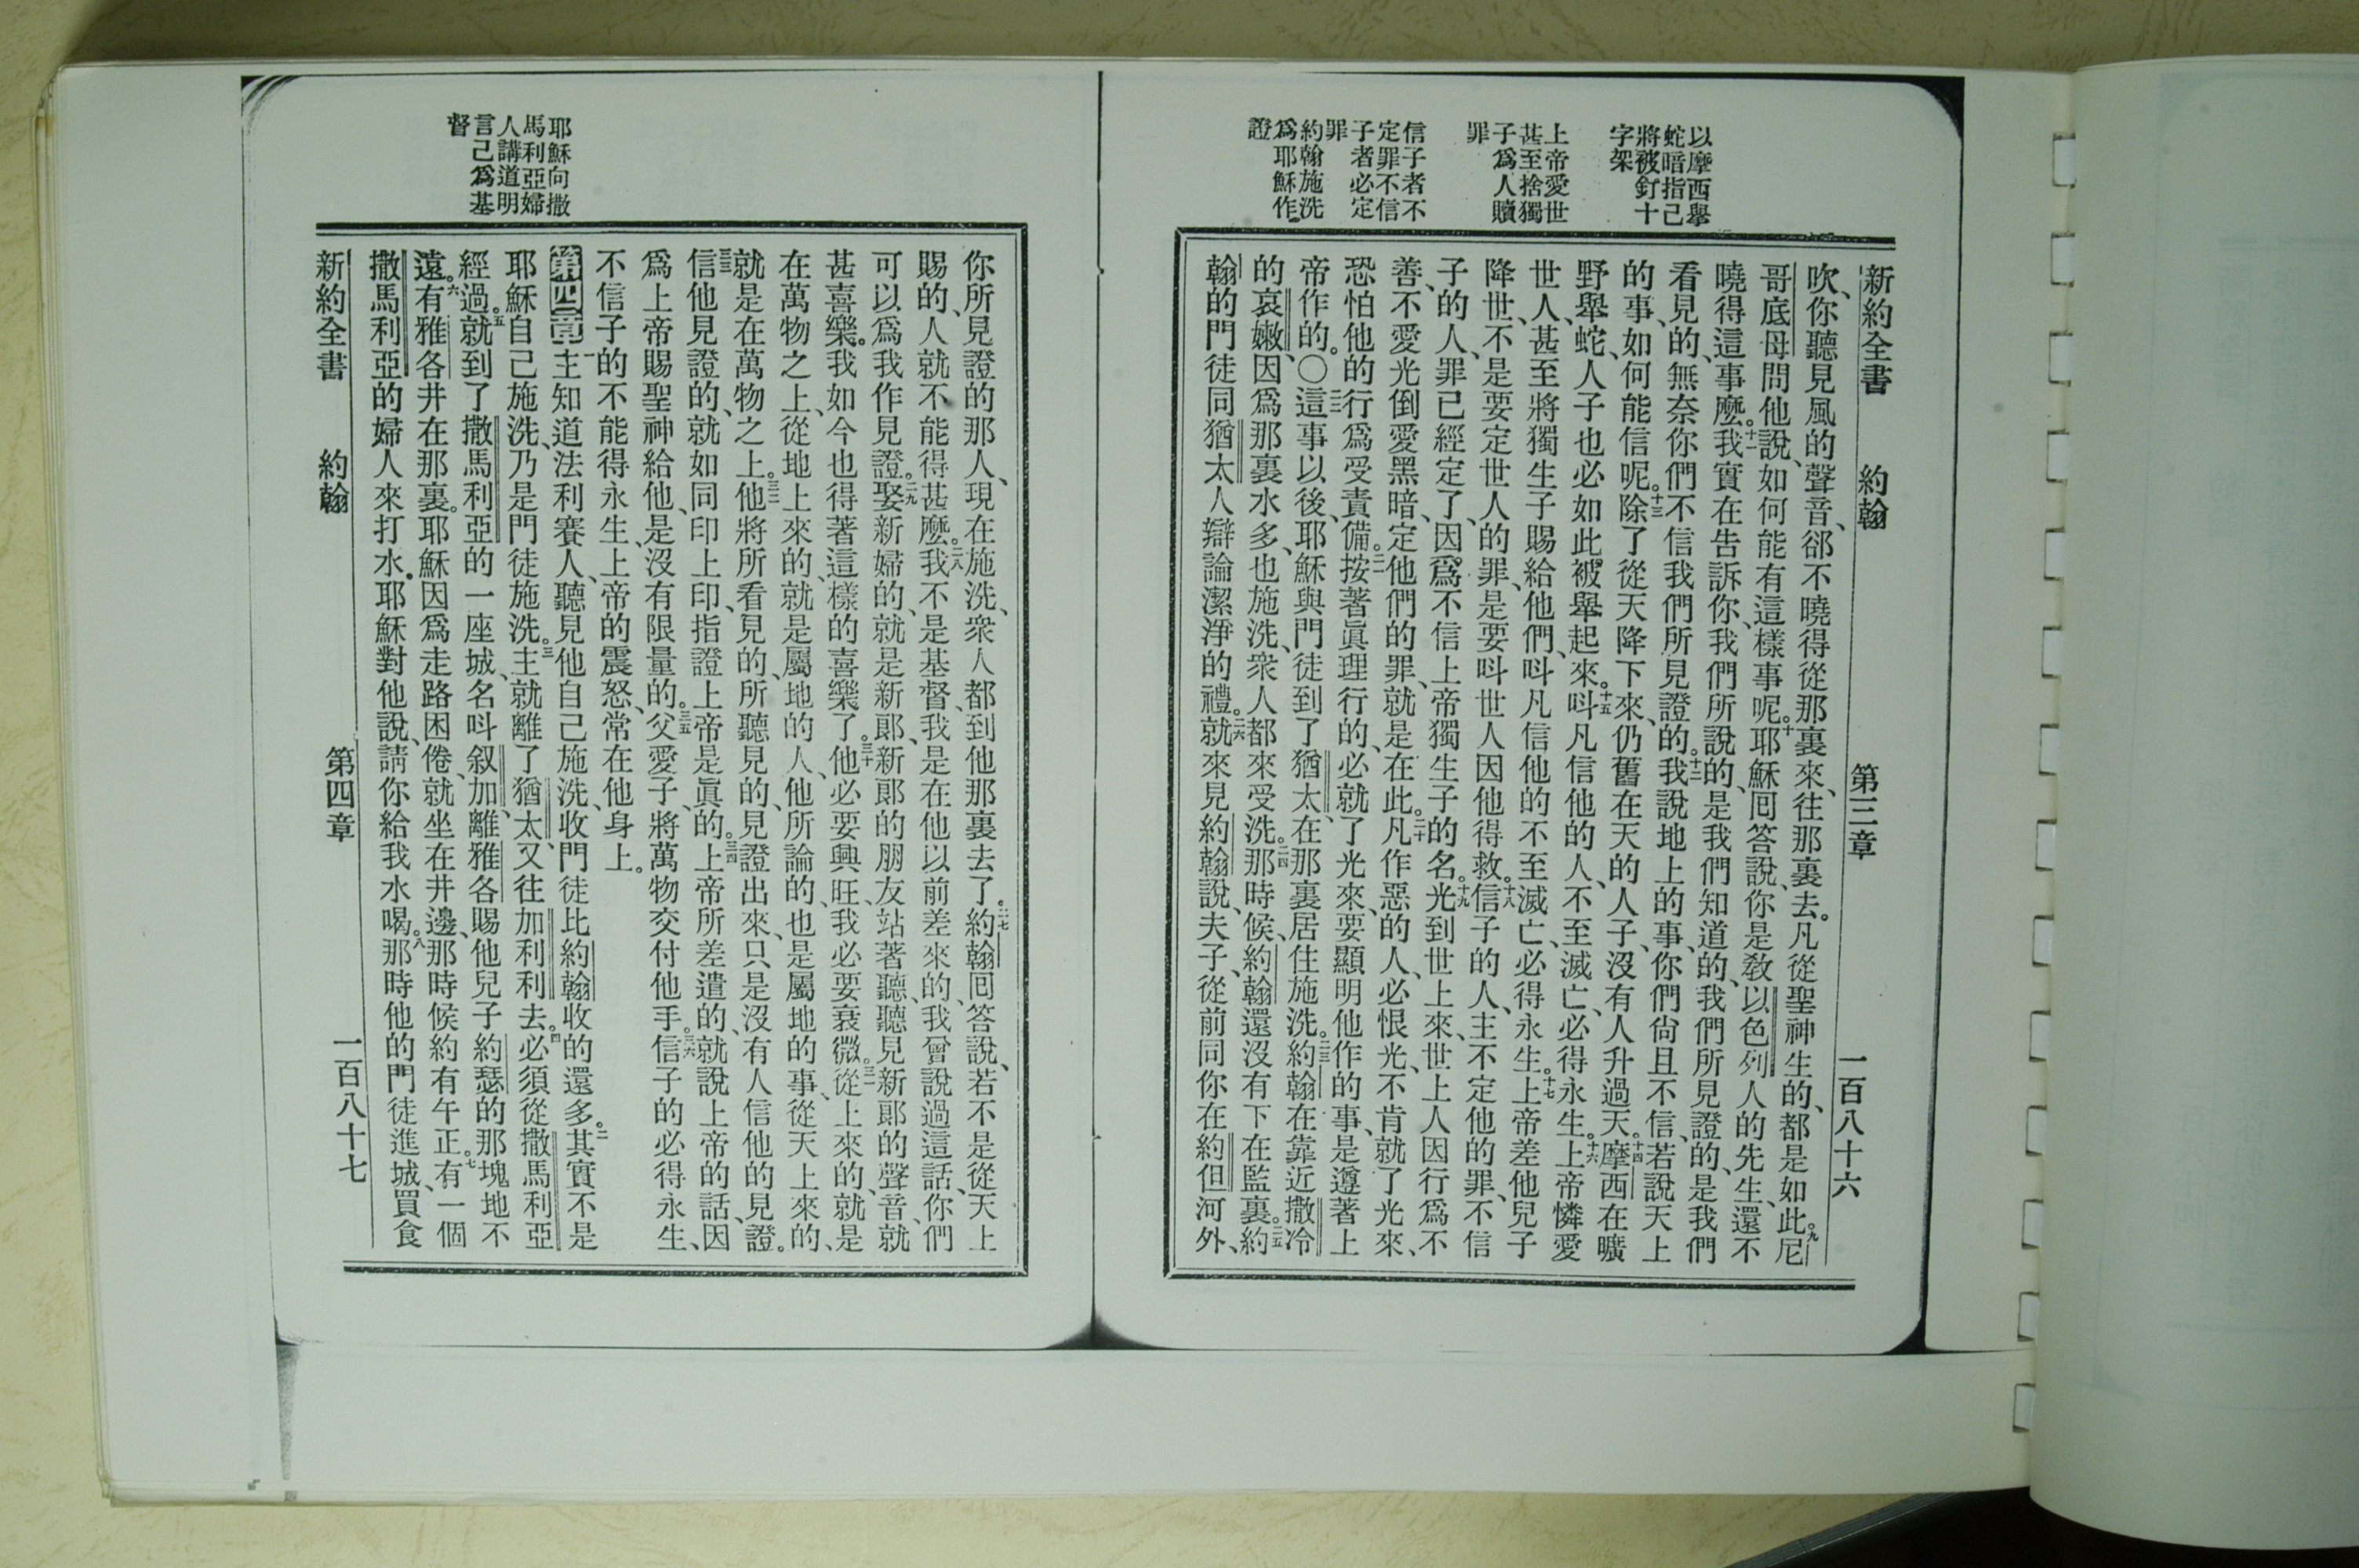 以摩西舉
蛇暗指己
將被釘十
字架
上帝愛世
甚至捨獨
子爲人贖
罪
信子者不
定罪不信
子者必定
罪
約翰施洗
爲耶穌作
證
新約全書 約翰 第三章 一百八十六
吹、你聽見風的聲音、郤不曉得從那裏來、往那裏去。凡從聖神生的、都是如此。九尼
哥底母問他說、如何能有這樣事呢。十耶穌囘答說、你是敎以色列人的先生、還不
曉得這事麽。十一我實在告訴你、我們所說的、是我們知道的、我們所見證的、是我們
看見的、無奈你們不信我們所見證的。十二我說地上的事、你們尙且不信、若說天上
的事、如何能信呢。十三除了從天降下來、仍舊在天的人子、沒有人升過天。十四摩西在曠
野舉蛇、人子也必如此被舉起來。十五呌凡信他的人、不至滅亡、必得永生。十六上帝憐愛
世人、甚至將獨生子賜給他們、呌凡信他的不至滅亡、必得永生。十七上帝差他兒子
降世、不是要定世人的罪、是要呌世人因他得救。十八信子的人、主不定他的罪、不信
子的人、罪已經定了、因爲不信上帝獨生子的名。十九光到世上來、世上人因行爲不
善、不愛光倒愛黑暗、定他們的罪、就是在此。二十凡作惡的人、必恨光、不肯就了光來、
恐怕他的行爲受責備。二一按著眞理行的、必就了光來、要顯明他作的事、是遵著上
帝作的。○二二這事以後、耶穌與門徒到了猶太、在那裏居住施洗。二三約翰在靠近撒冷
的哀嫩、因爲那裏水多、也施洗、衆人都來受洗。二四那時候、約翰還沒有下在監裏。二五約
翰的門徒同猶太人辯論潔淨的禮。二六就來見約翰說、夫子、從前同你在約但河外、
耶穌向撒
馬利亞婦
人講道明
言己爲基
督
你所見證的那人、現在施洗、衆人都到他那裏去了。二七約翰囘答說、若不是從天上
賜的、人就不能得甚麽。二八我不是基督、我是在他以前差來的、我曾說過這話、你們
可以爲我作見證。二九娶新婦的、就是新郞、新郞的朋友站著聽、聽見新郞的聲音、就
甚喜樂。我如今也得著這樣的喜樂了。三十他必要興旺、我必要衰微。三一從上來的、就是
在萬物之上、從地上來的、就是屬地的人、他所論的、也是屬地的事、從天上來的、
就是在萬物之上。三二他將所看見的、所聽見的、見證出來、只是沒有人信他的見證。
三三信他見證的、就如同印上印、指證上帝是眞的。三四上帝所差遣的、就說上帝的話、因
爲上帝賜聖神給他、是沒有限量的。三五父愛子、將萬物交付他手。三六信子的必得永生、
不信子的不能得永生、上帝的震怒、常在他身上。
第四章 一主知道法利賽人、聽見他自己施洗、收門徒比約翰收的還多。二其實不是
耶穌自己施洗、乃是門徒施洗。三主就離了猶太、又往加利利去。四必須從撒馬利亞
經過。五就到了撒馬利亞的一座城、名呌叙加、離雅各賜他兒子約瑟的那塊地不
遠。六有雅各井在那裏。耶穌因爲走路困倦、就坐在井邊、那時候約有午正。七有一個
撒馬利亞的婦人來打水。耶穌對他說、請你給我水喝。八那時他的門徒進城、買食
新約全書 約翰 第四章 一百八十七